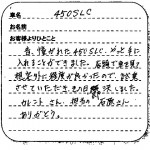 車名 450SLC
お名前
お客様よりひとこと
昔、憧れた450SLC、やっと手に
入れることができました。店頭で車を見て
想定外に程度が良かったので、試乗
させていただき、その日に決しました。
カレントさん、担当の石原さん
ありがとう。